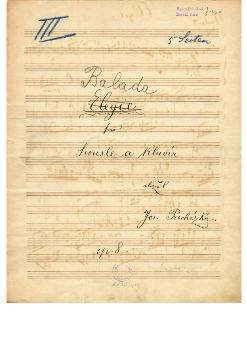 III
5 Seiten
Balada
Elegie
pro
housle a klavír
složil
Jos. Procházka.
op. 8.